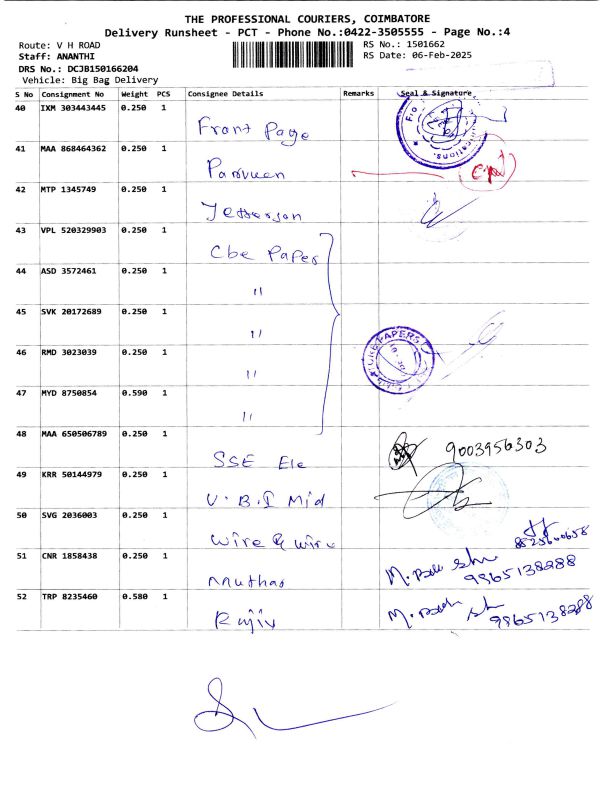 THE PROFESSIONAL COURIERS, COIMBATORE
Delivery Runsheet - PCT - Phone No.:0422-3505555 - Page No.:4
Route: V H ROAD RS No.: 1501662
Staff: ANANTHI RS Date: 06-Feb-2025
DRS No.: DCJB150166204
Vehicle: Big Bag Delivery
S No Consignment No Weight PCS Consignee Details Remarks Seal & Signature
40 IXM 303443445 0.250 1 Front Page
41 MAA 868464362 0.250 1 Parveen
42 MTP 1345749 0.250 1 Jefferson
43 VPL 520329903 0.250 1 Cbe Paper
44 ASD 3572461 0.250 1 "
45 SVK 20172689 0.250 1 "
46 RMD 3023039 0.250 1 "
PAPERS
47 MYD 8750854 0.590 1 "
48 MAA 650506789 0.250 1 SSE Ele 9003956303
49 KRR 50144979 0.250 1 U.B.I Mid
50 SVG 2036003 0.250 1 Wire & Wire
51 CNR 1858438 0.250 1 Muthas 9865138288
52 TRP 8235460 0.580 1 Rajiv 9865138288